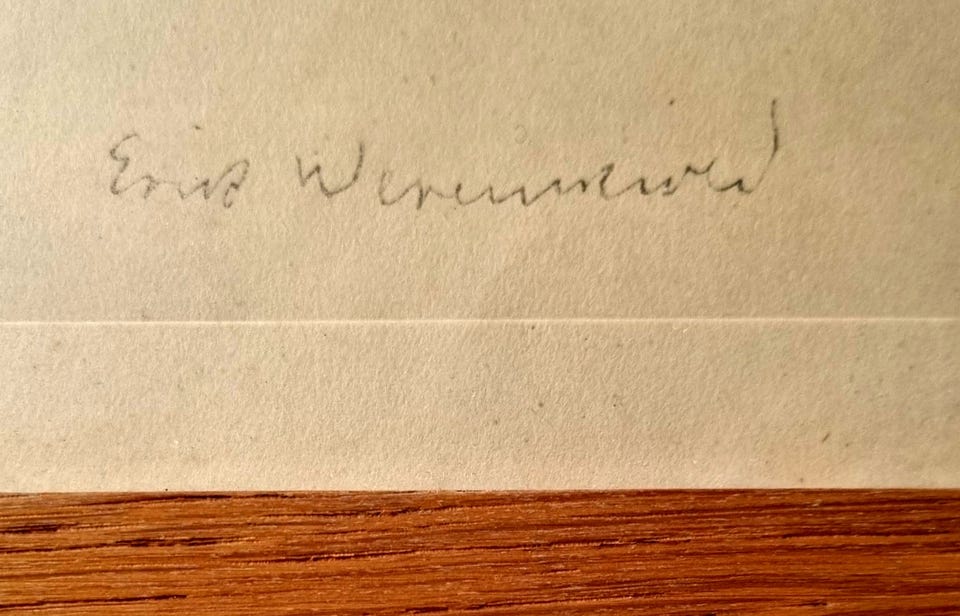 Erik Werenskiold